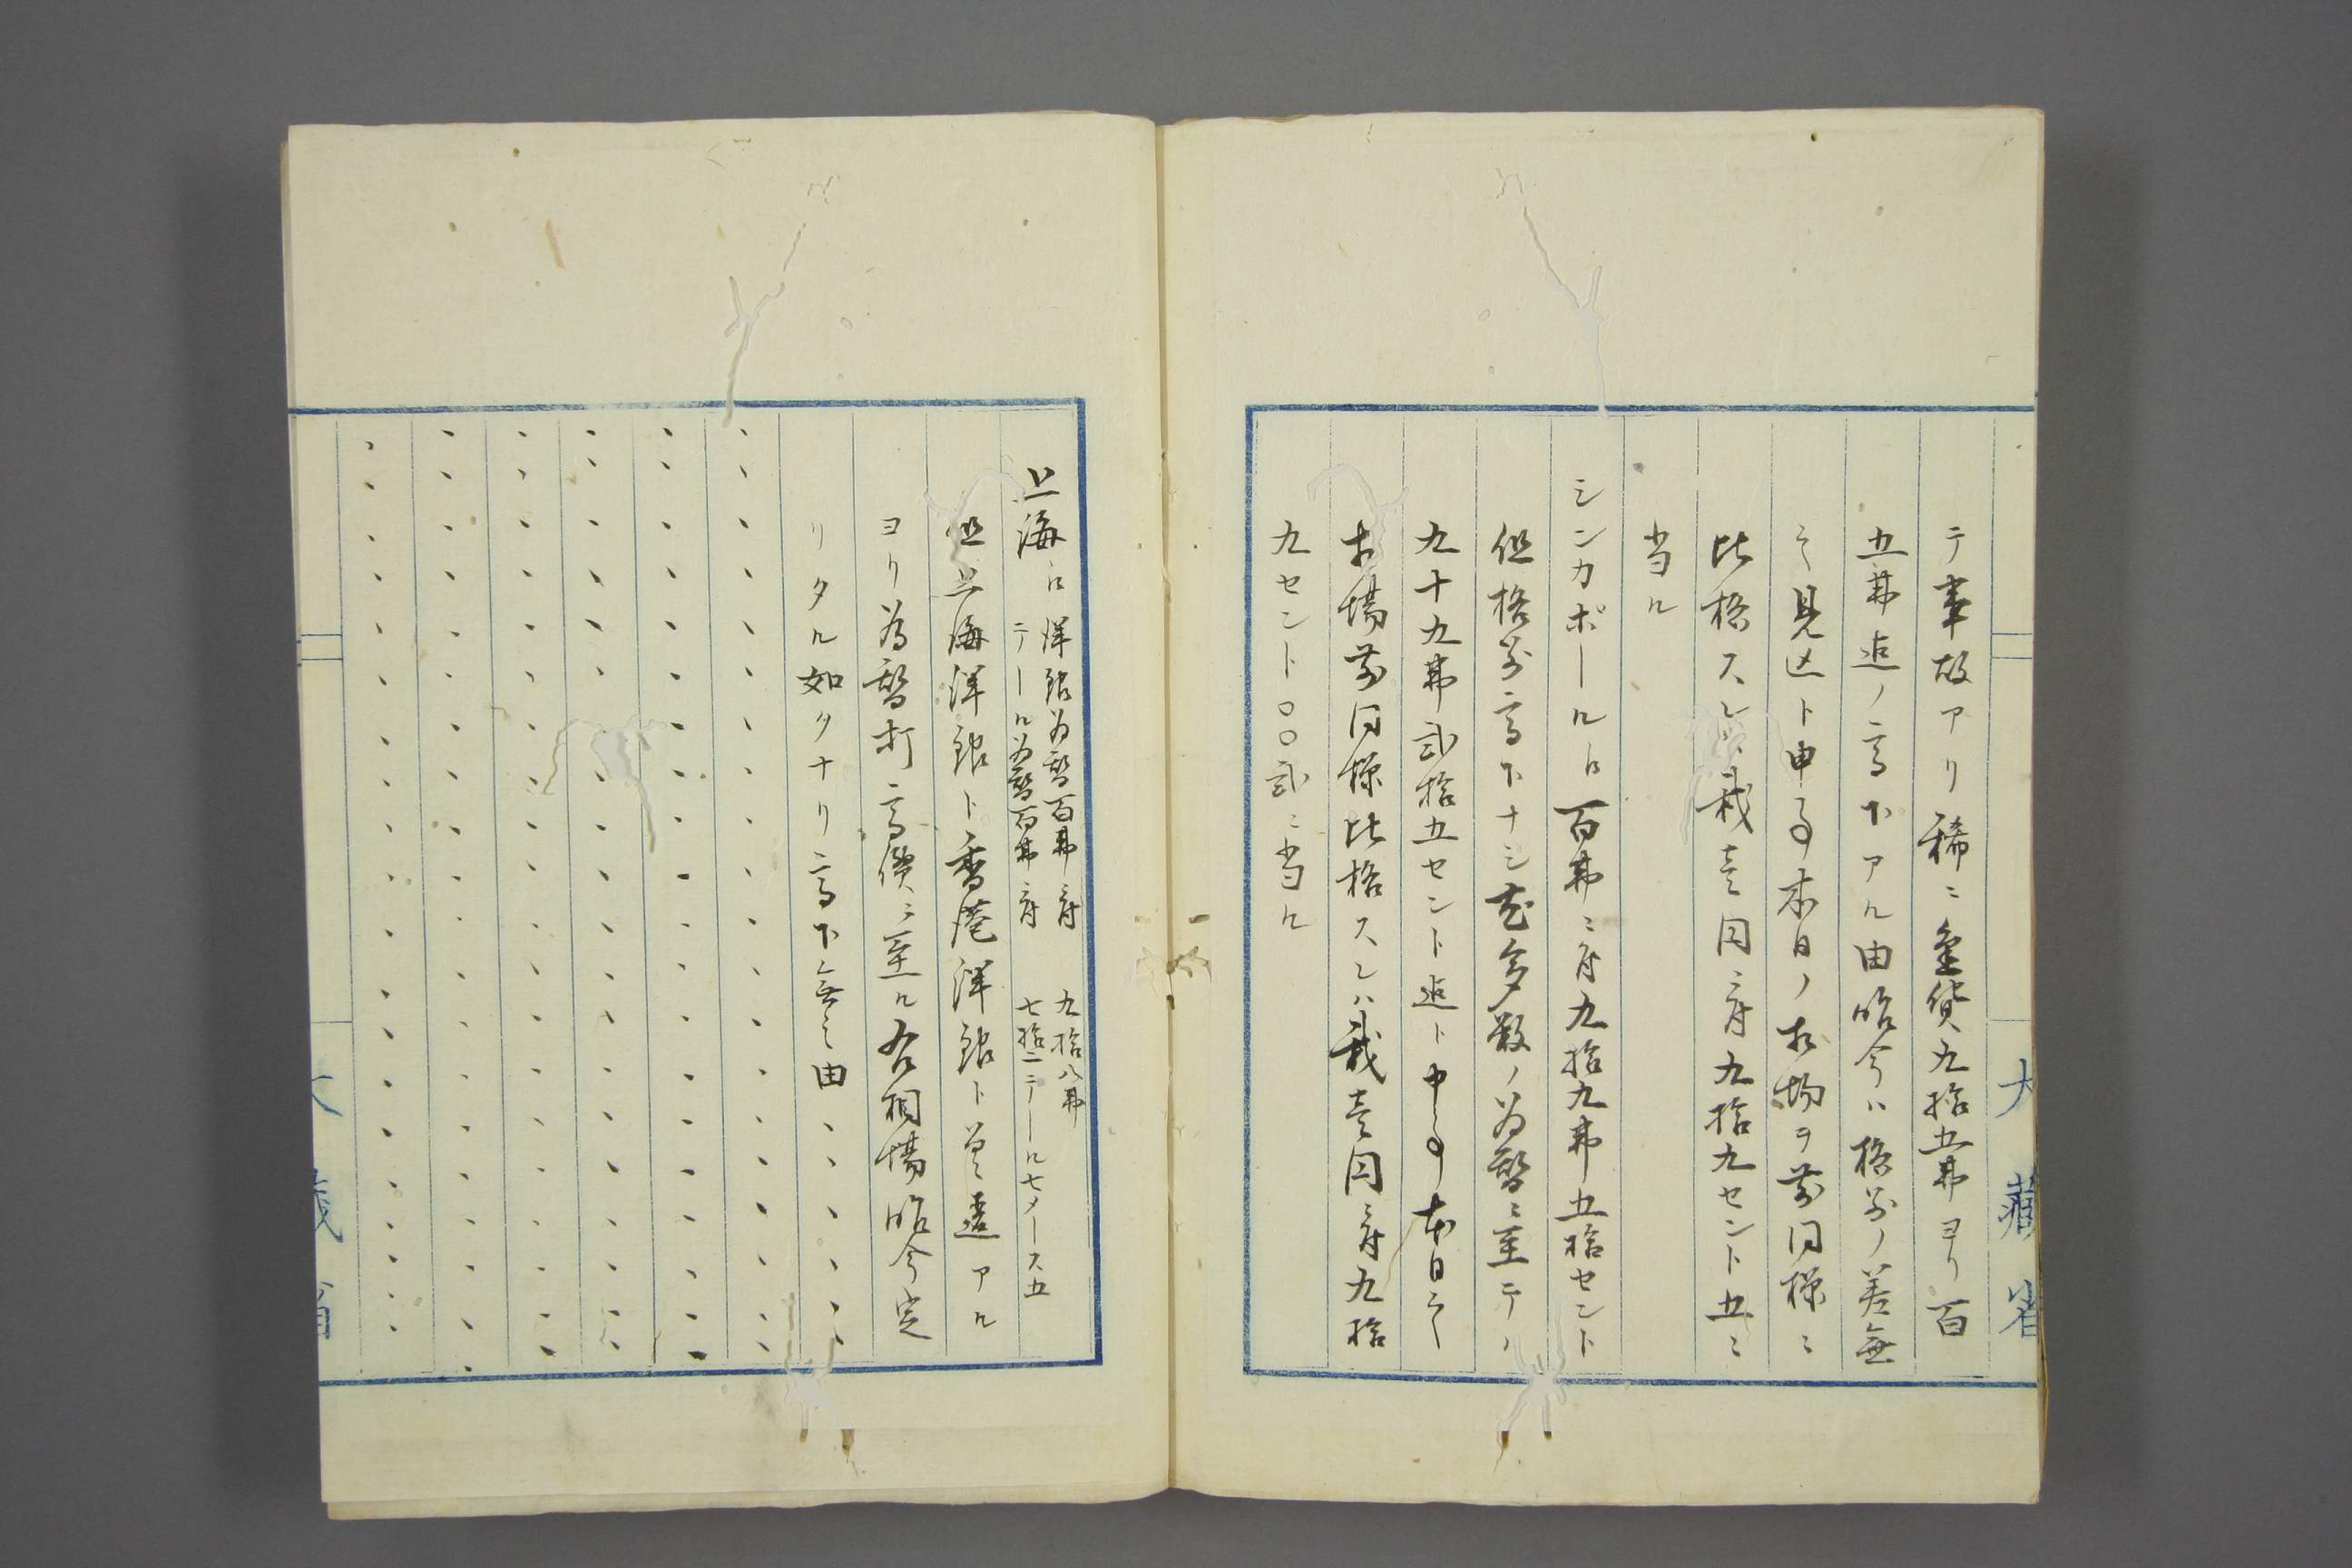 大藏省
テ事故アリ稀ニ金貨九拾五弗ヨリ百
五弗迄ノ高下アル由昨今ハ格別ノ差無
之見込ト申事本日ノ相場ヲ前同様ニ
比格スレハ我壱円ニ付九拾九セント五ニ
当ル
シンカポールハ百弗ニ付九拾九弗五拾セント
但格別高下ナシ尤多数ノ為替ニ至テハ
九十九弗弐拾五セント迄ト申事本日之
相場前同様比格スレハ我壱円ニ付九拾
九セント〇〇弐ニ当ル
上海ハ
洋銀為替百弗ニ付 九拾八弗
テール為替百弗ニ付 七拾二テール七メース五
但上海洋銀ト香港洋銀ト差違アル
ヨリ為替打高価ニ至ル右相場昨今定
リタル如クナリ高下無之由